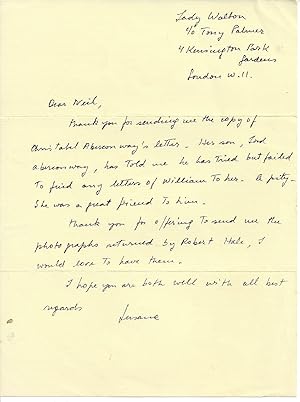 Lady Walton
c/o Tony Palmer
4 Kensington Park
Gardens
London W.11.
Dear Neil,
Thank you for sending me the copy of
Christabel Aberconway's letter. Her son, Lord
Aberconway, has told me he has tried but failed
to find any letters of William to her. A pity.
She was a great friend to him.
Thank you for offering to send me the
photographs returned by Robert Hale, I
would love to have them.
I hope you are both well with all best
regards
Susana